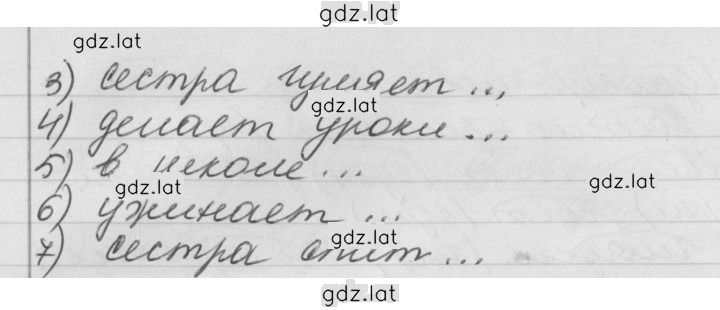 gdz.lat
gdz.lat
3) сестра гуляет ...
gdz.lat
4) делает уроки ...
5) в школе ...
gdz.lat
gdz.lat
6) ужинает ...
gdz.lat
7) сестра спит ...
gdz.lat